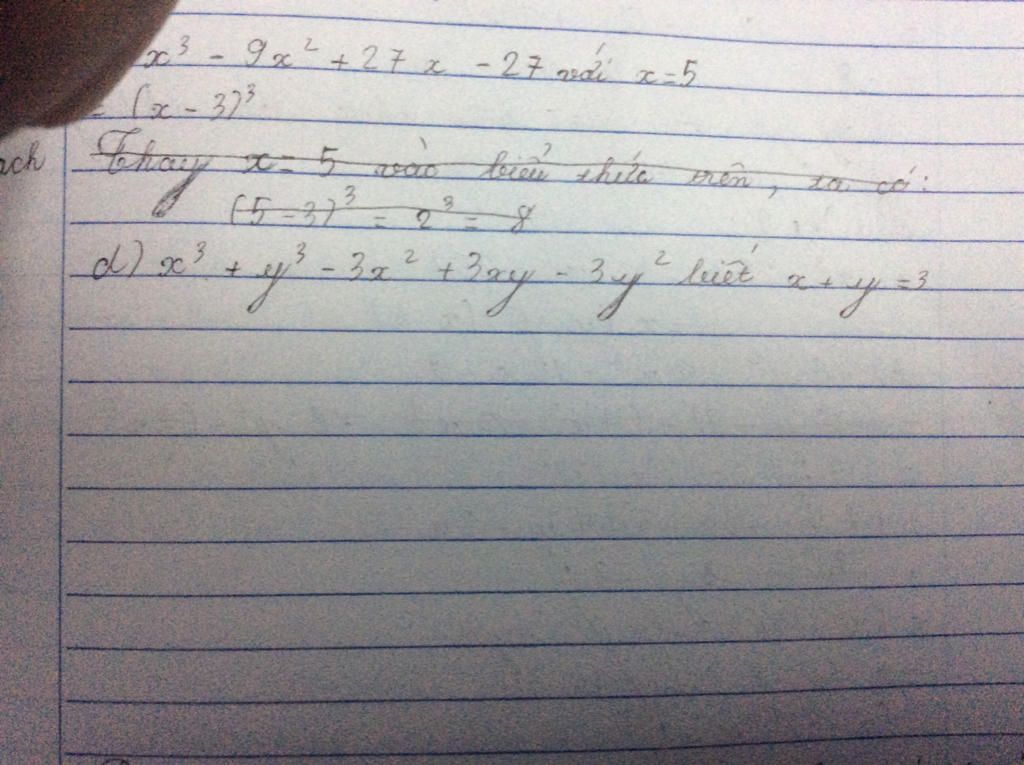 x³ - 9x² + 27x - 27 với x = 5
= (x - 3)³
ach
Thay x = 5 vào biểu thức trên, ta có:
(5 - 3)³ = 2³ = 8
d) x³ + y³ - 3x² + 3xy - 3y² biết x + y = 3